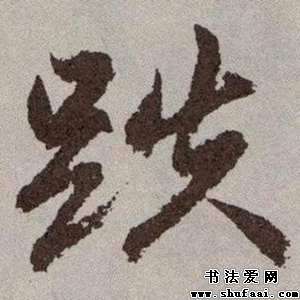 跌
书法爱网
www.shufaai.com